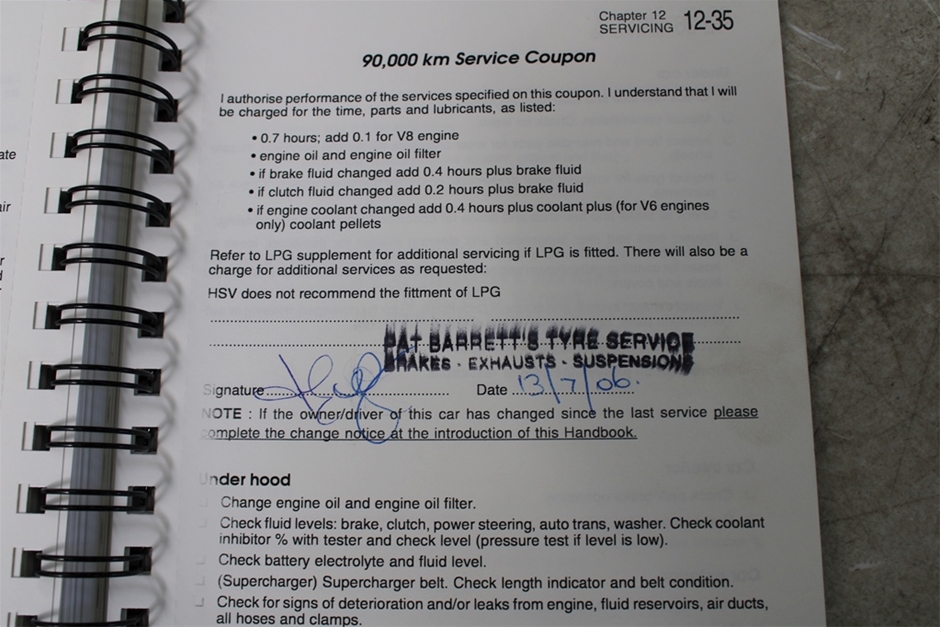 Chapter 12
SERVICING 12-35
90,000 km Service Coupon
I authorise performance of the services specified on this coupon. I understand that I will
be charged for the time, parts and lubricants, as listed:
• 0.7 hours; add 0.1 for V8 engine
• engine oil and engine oil filter
• if brake fluid changed add 0.4 hours plus brake fluid
• if clutch fluid changed add 0.2 hours plus brake fluid
• if engine coolant changed add 0.4 hours plus coolant plus (for V6 engines
only) coolant pellets
Refer to LPG supplement for additional servicing if LPG is fitted. There will also be a
charge for additional services as requested:
HSV does not recommend the fittment of LPG
PAT BARRETT'S TYRE SERVICE
BRAKES - EXHAUSTS - SUSPENSIONS
Signature Date 13/7/06.
NOTE : If the owner/driver of this car has changed since the last service please
complete the change notice at the introduction of this Handbook.
Under hood
Change engine oil and engine oil filter.
Check fluid levels: brake, clutch, power steering, auto trans, washer. Check coolant
inhibitor % with tester and check level (pressure test if level is low).
Check battery electrolyte and fluid level.
(Supercharger) Supercharger belt. Check length indicator and belt condition.
Check for signs of deterioration and/or leaks from engine, fluid reservoirs, air ducts,
all hoses and clamps.